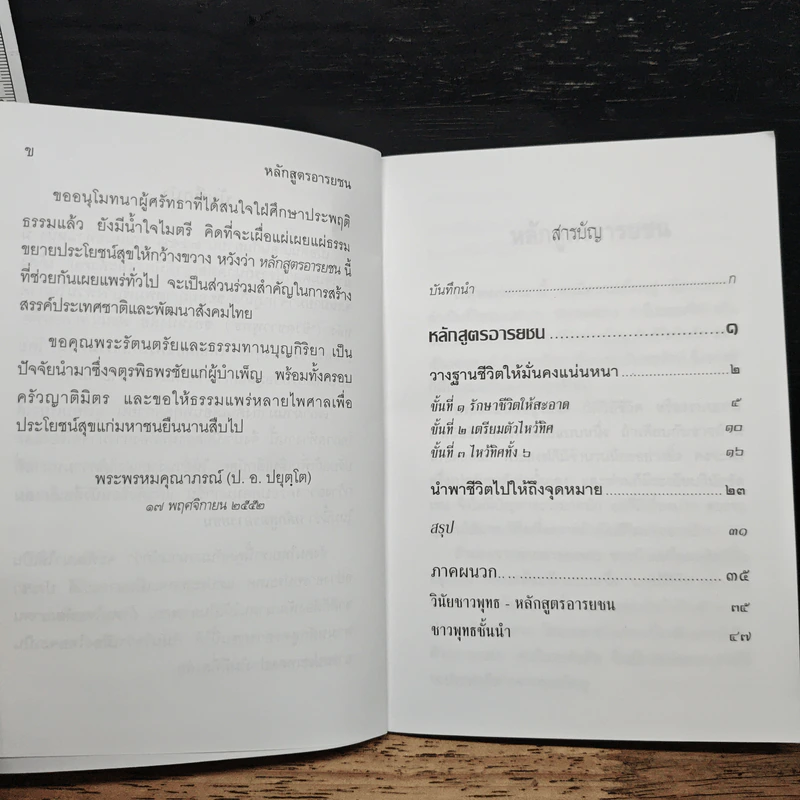 ข
หลักสูตรอารยชน
ขออนุโมทนาผู้ศรัทธาที่ได้สนใจใฝ่ศึกษาประพฤติ
ธรรมแล้ว ยังมีน้ำใจไมตรี คิดที่จะเผื่อแผ่เผยแผ่ธรรม
ขยายประโยชน์สุขให้กว้างขวาง หวังว่า หลักสูตรอารยชน นี้
ที่ช่วยกันเผยแพร่ทั่วไป จะเป็นส่วนร่วมสำคัญในการสร้าง
สรรค์ประเทศชาติและพัฒนาสังคมไทย
ขอคุณพระรัตนตรัยและธรรมทานบุญกิริยา เป็น
ปัจจัยนำมาซึ่งจตุรพิธพรชัยแก่ผู้บำเพ็ญ พร้อมทั้งครอบ
ครัวญาติมิตร และขอให้ธรรมแพร่หลายไพศาลเพื่อ
ประโยชน์สุขแก่มหาชนยืนนานสืบไป
พระพรหมคุณาภรณ์ (ป. อ. ปยุตฺโต)
๑๗ พฤศจิกายน ๒๕๕๒
สารบัญ
บันทึกนำ ........................................ ก
หลักสูตรอารยชน ........................................ ๑
วางฐานชีวิตให้มั่นคงแน่นหนา ........................................ ๒
ขั้นที่ ๑ รักษาชีวิตให้สะอาด ๕
ขั้นที่ ๒ เตรียมตัวไหว้ทิศ ๑๐
ขั้นที่ ๓ ไหว้ทิศทั้ง ๖ ๑๖
นำพาชีวิตไปให้ถึงจุดหมาย ........................................ ๒๓
สรุป ๓๑
ภาคผนวก ........................................ ๓๕
วินัยชาวพุทธ - หลักสูตรอารยชน ๓๕
ชาวพุทธชั้นนำ ๔๗